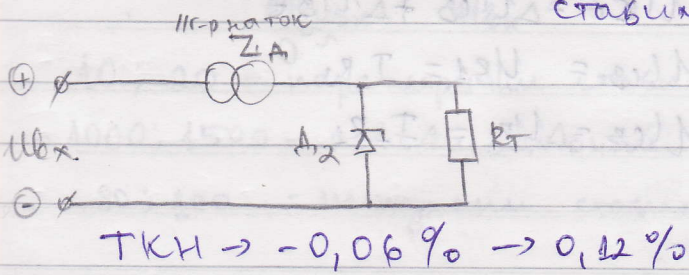 стабил
U=I г-р на ток
Z Д
+
Uвх.
Д2
RT
-
ТКН → -0,06% → 0,12%